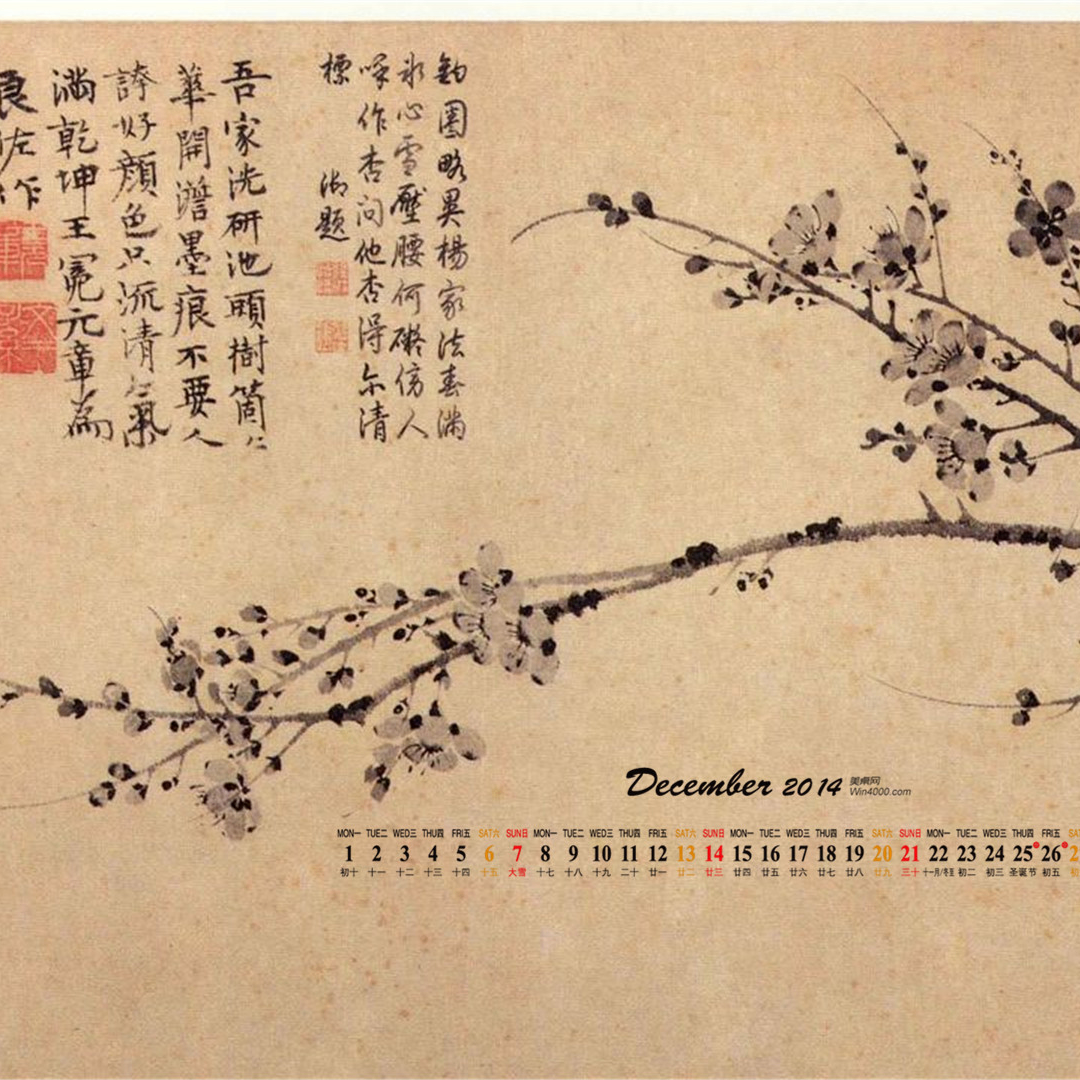 鈎圈略異楊家法春滿
冰心雪壓腰何礙傍人
呼作杏問他杏得尔清
標
御題
吾家洗研池頭樹箇〻
華開澹墨痕不要人
誇好顏色只流清氣
滿乾坤王冕元章為
良佐作
December 2014
美桌网
Win4000.com
MON一 TUE二 WED三 THU四 FRI五 SAT六 SUN日 MON一 TUE二 WED三 THU四 FRI五 SAT六 SUN日 MON一 TUE二 WED三 THU四 FRI五 SAT六 SUN日 MON一 TUE二 WED三 THU四 FRI五 SAT
1 2 3 4 5 6 7 8 9 10 11 12 13 14 15 16 17 18 19 20 21 22 23 24 25 26 2
初十 十一 十二 十三 十四 十五 大雪 十七 十八 十九 二十 廿一 廿二 廿三 廿四 廿五 廿六 廿七 廿八 廿九 三十 十一月/冬至 初二 初三 圣诞节 初五